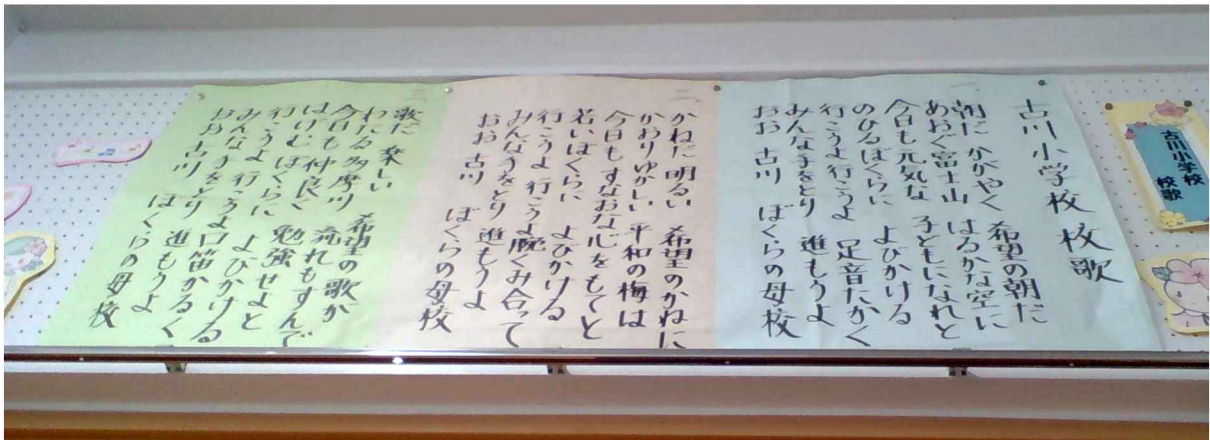 古川小学校 校歌
一、
朝だ かがやく 希望の朝だ
あおぐ富士山 はるかな空に
今日も元気な 子どもになれと
のびるぼくらに よびかける
行こうよ 行こうよ 足音たかく
みんな手をとり 進もうよ
おお 古川 ぼくらの母校
二、
かねだ 明るい 希望のかねに
かおりゆかしい 平和の梅は
今日も すなおな 心をもてと
若いぼくらに よびかける
行こうよ 行こうよ 腕くみ合って
みんな手をとり 進もうよ
おお 古川 ぼくらの母校
三、
歌だ 楽しい 希望の歌が
わたる多摩川 流れもすんで
今日も 仲良く 勉強せよと
はげむぼくらに よびかける
行こうよ 行こうよ 口笛かるく
みんな手をとり 進もうよ
おお 古川 ぼくらの母校
古川小学校
校歌